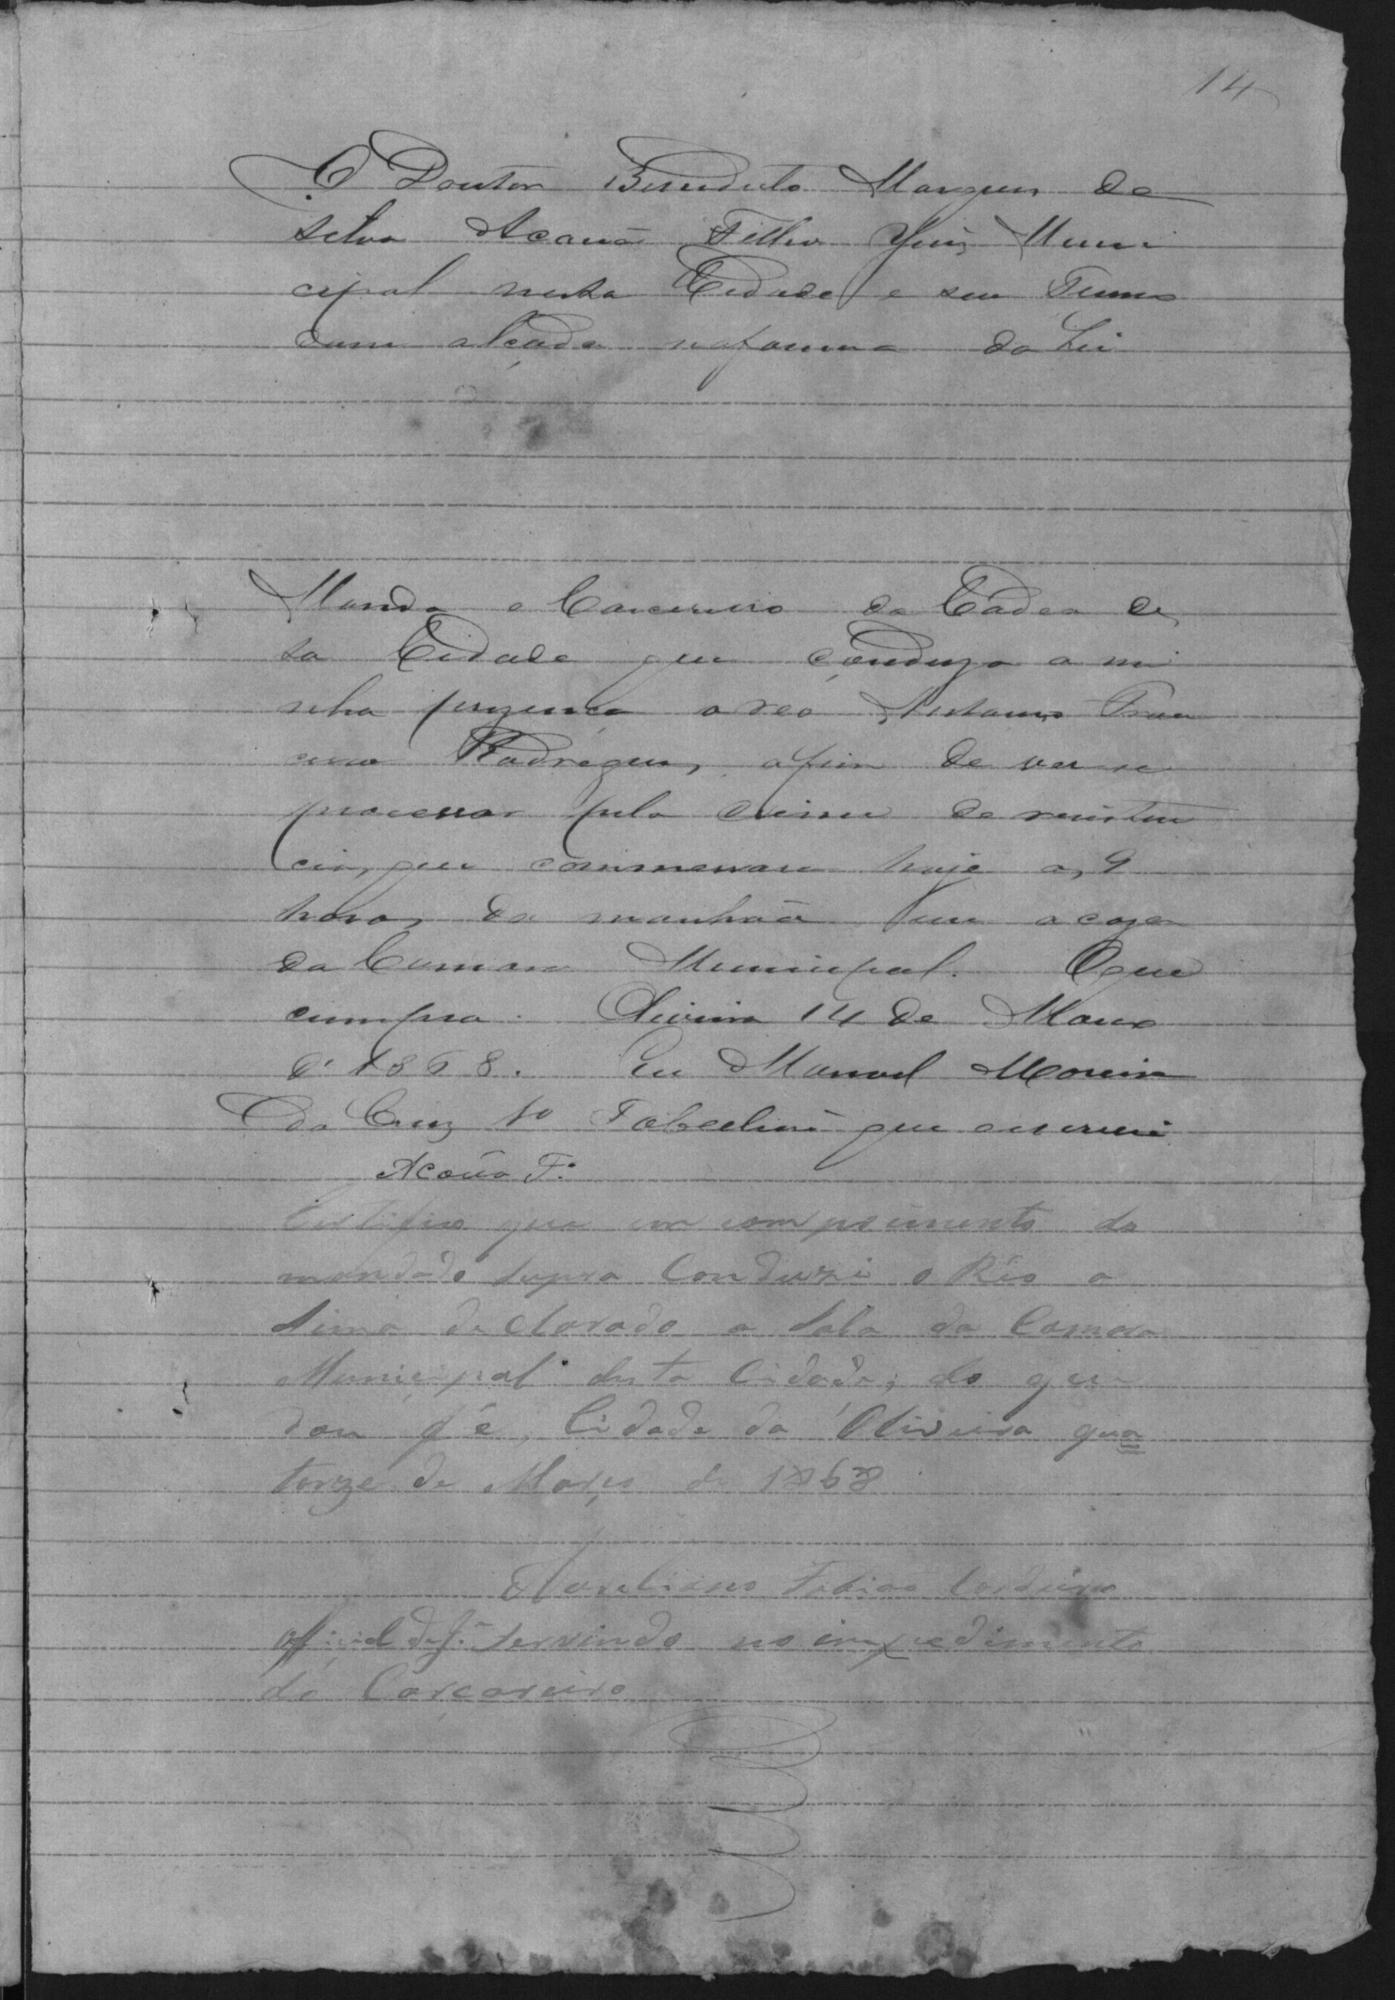 14
O Doutor Benedicto Marques da
Silva Acauã Filho Juis Muni
cipal nesta Cidade e seu Termo
com alçada na forma da Lei
Manda o Carcereiro da Cadea des
ta Cidade que conduza a mi
nha prezença o reo Antonio Fran
cisco Rodrigues, afim de ver se
processar pelo crime de resisten
cia, que commessara hoje as 9
horas da manhãa em a caza
da Camara Municipal. O que
cumpra. Oliveira 14 de Março
d'1868. Eu Manoel Moreira
da Cruz 1o Tabelliaõ que escrevi
Acauã Fo.
Certifico que em comprimento do
mandado supra Conduzi o Réo a
sima declarado a Sala da Camara
Municipal desta Cidade, do que
dou fé, Cidade da Oliveira qua
torze de Março de 1868
Aureliano Fabiao Cordeiro
official de J. servindo no impedimento
do Carcareiro